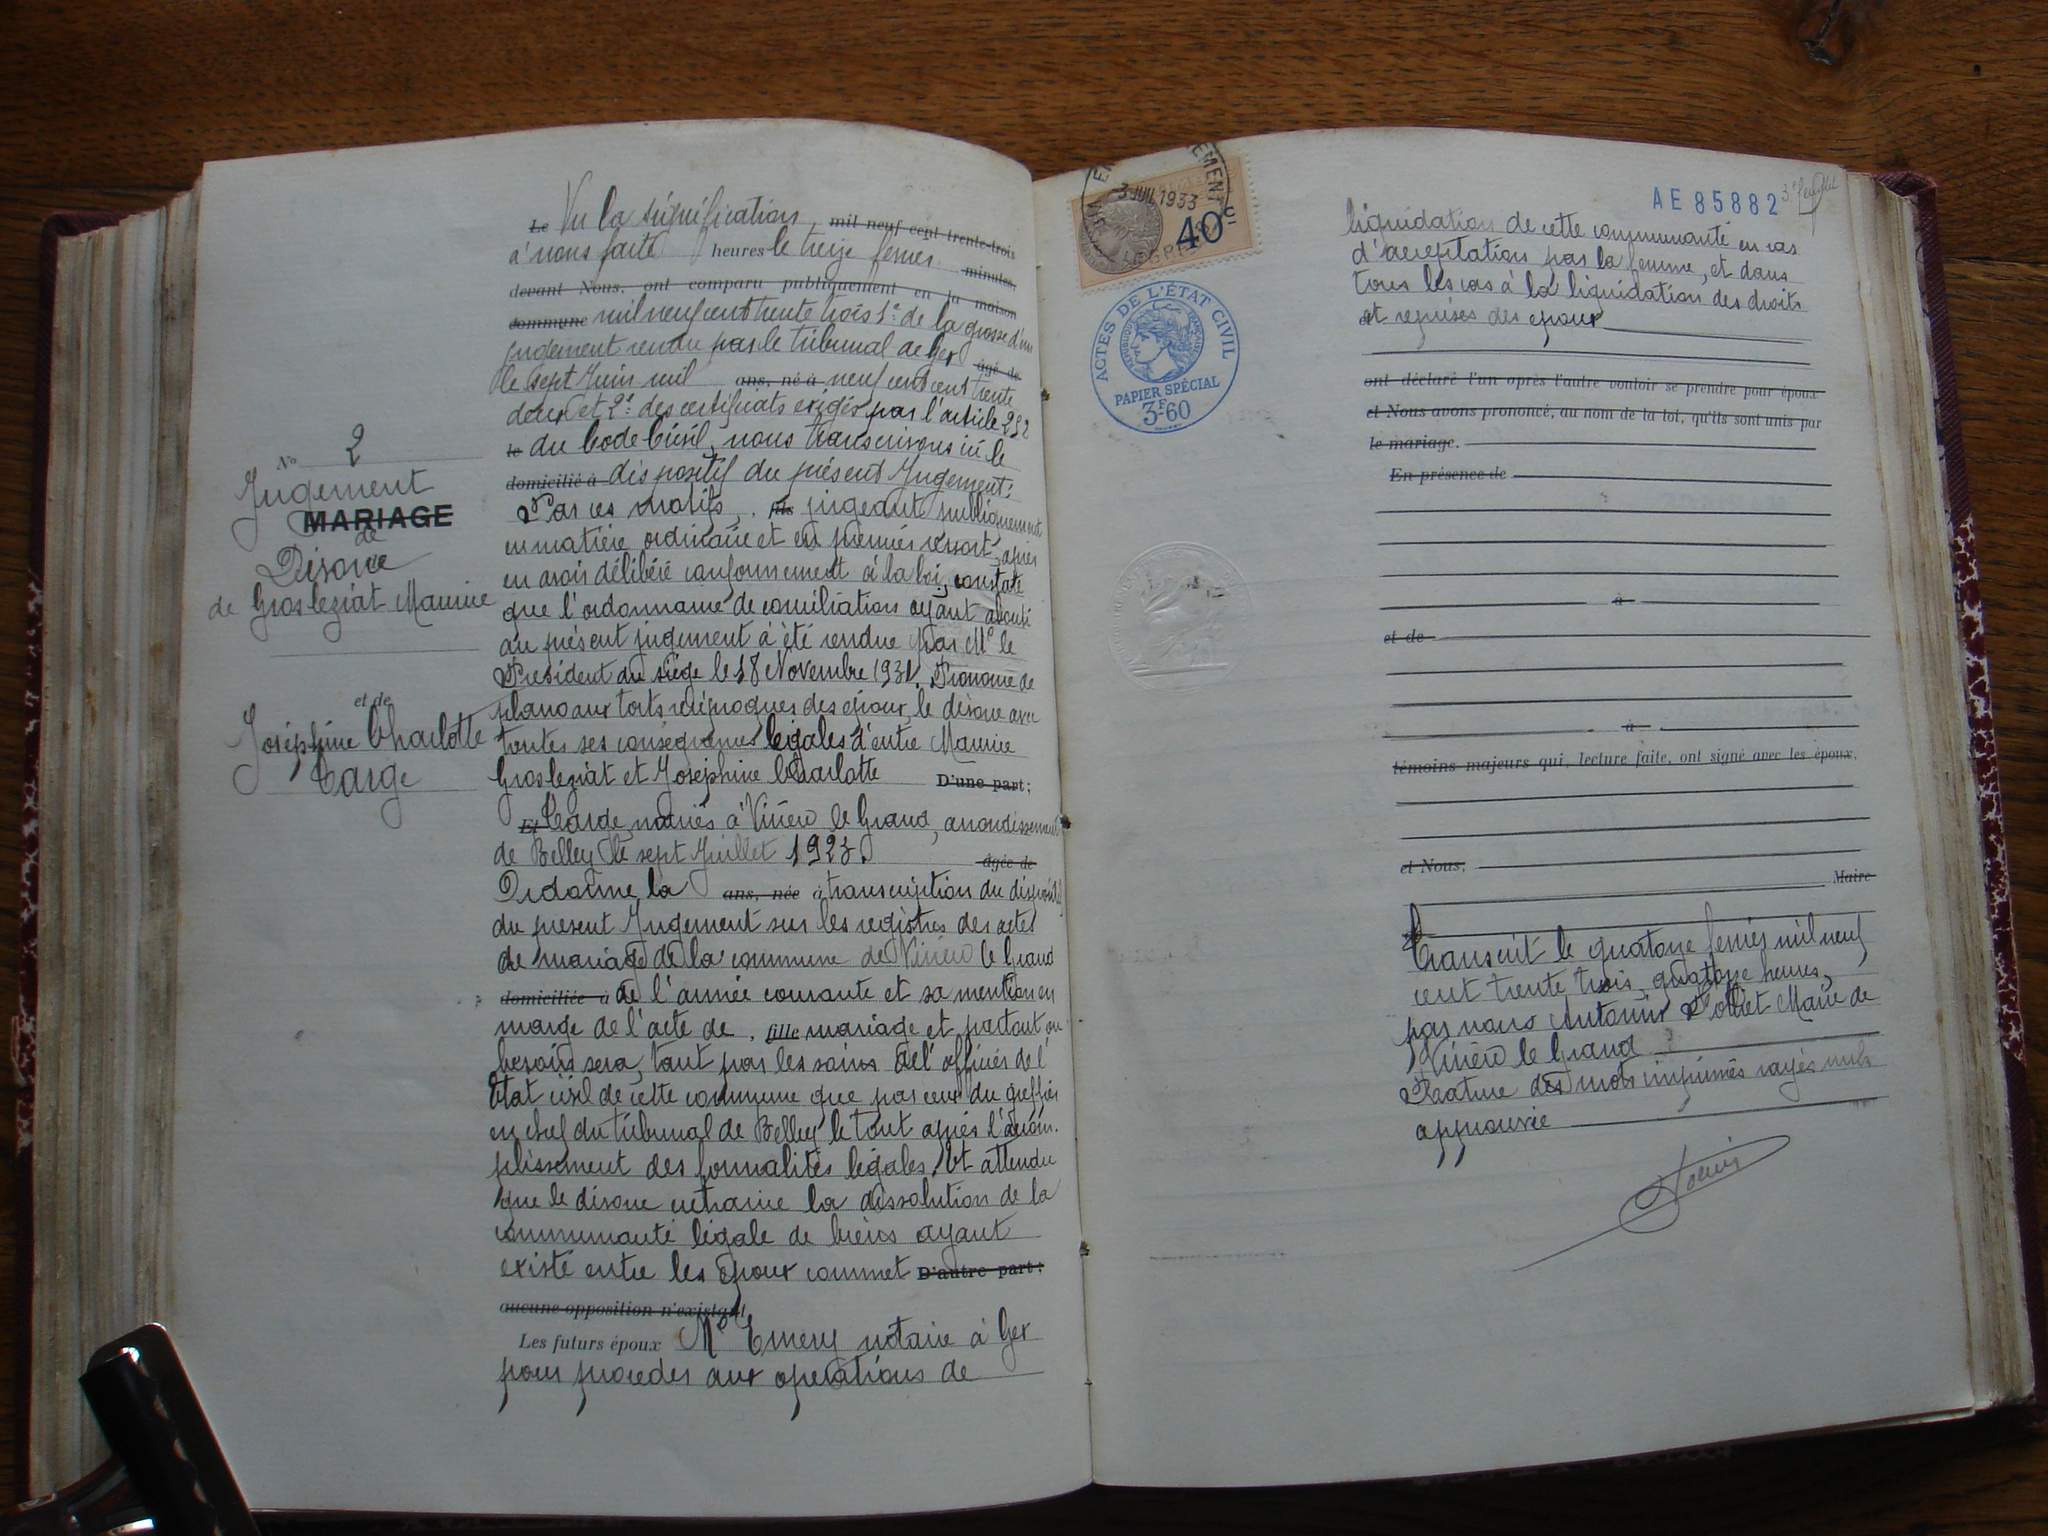 Le Vu la signification mil neuf cent trente-trois
à nous faite heures le treize fevrier minutes,
devant Nous, ont comparu publiquement en la maison
commune mil neuf cent trente trois 1º de la grosse d'un
jugement rendu par le tribunal de Gex âgé de
le sept Juin mil ans, né à neuf cent cent trente
deux et 2º des certificats exigés par l'article 252
le du Code Civil, nous transcrivons ici le
domicilié à dispositif du présent Jugement:
Par ces motifs, fils jugeant publiquement
en matière ordinaire et en premier ressort, après
en avoir délibéré conformement à la loi, constate
que l'ordonnance de conciliation ayant abouti
au présent jugement à été rendue par Mr le
President du siège le 18 Novembre 1931. Prononce de
plano aux torts réciproques des époux, le divorce avec
toutes ses conséquences légales d'entre Maurice
Grosleziat et Joséphine Charlotte D'une part;
Et Carge, mariés à Virieu le Grand, arrondissement
de Belley le sept Juillet 1923. âgée de
Ordonne la ans, née à transcription du dispositif
du present Jugement sur les registres des actes
de mariage de la commune de Virieu le Grand
domiciliée à de l'année courante et sa mention en
marge de l'acte de fille mariage et partout ou
besoin sera, tant par les soins de l'officier de l'
Etat civil de cette commune que par ceux du greffier
en chef du tribunal de Belley le tout après l'accom-
plissement des formalités légales. Et attendu
que le divorce entraine la dissolution de la
communauté légale de biens ayant
existé entre les époux commet D'autre part;
aucune opposition n'existant
Les futurs époux Me Emery notaire à Gex
pour proceder aux operations de
No 2
Jugement
MARIAGE
de
Divorce
de Grosleziat Maurice
et de
Joséphine Charlotte
Carge
3 JUIL 1933
40 C
ACTES DE L'ÉTAT CIVIL
RÉPUBLIQUE FRANÇAISE
PAPIER SPÉCIAL
3F60
AE 85882
liquidation de cette communauté en cas
d'acceptation par la femme, et dans
tous les cas à la liquidation des droits
et reprises des epoux
ont déclaré l'un après l'autre vouloir se prendre pour époux
et Nous avons prononcé, au nom de la loi, qu'ils sont unis par
le mariage.
En présence de
à
et de
à
témoins majeurs qui, lecture faite, ont signé avec les époux,
et Nous,
Maire
Transcrit le quatorze fevrier mil neuf
cent trente trois, quatorze heures,
par nous Antonin Maire de
Virieu le Grand
Rature des mots imprimés rayés nuls
approuvée